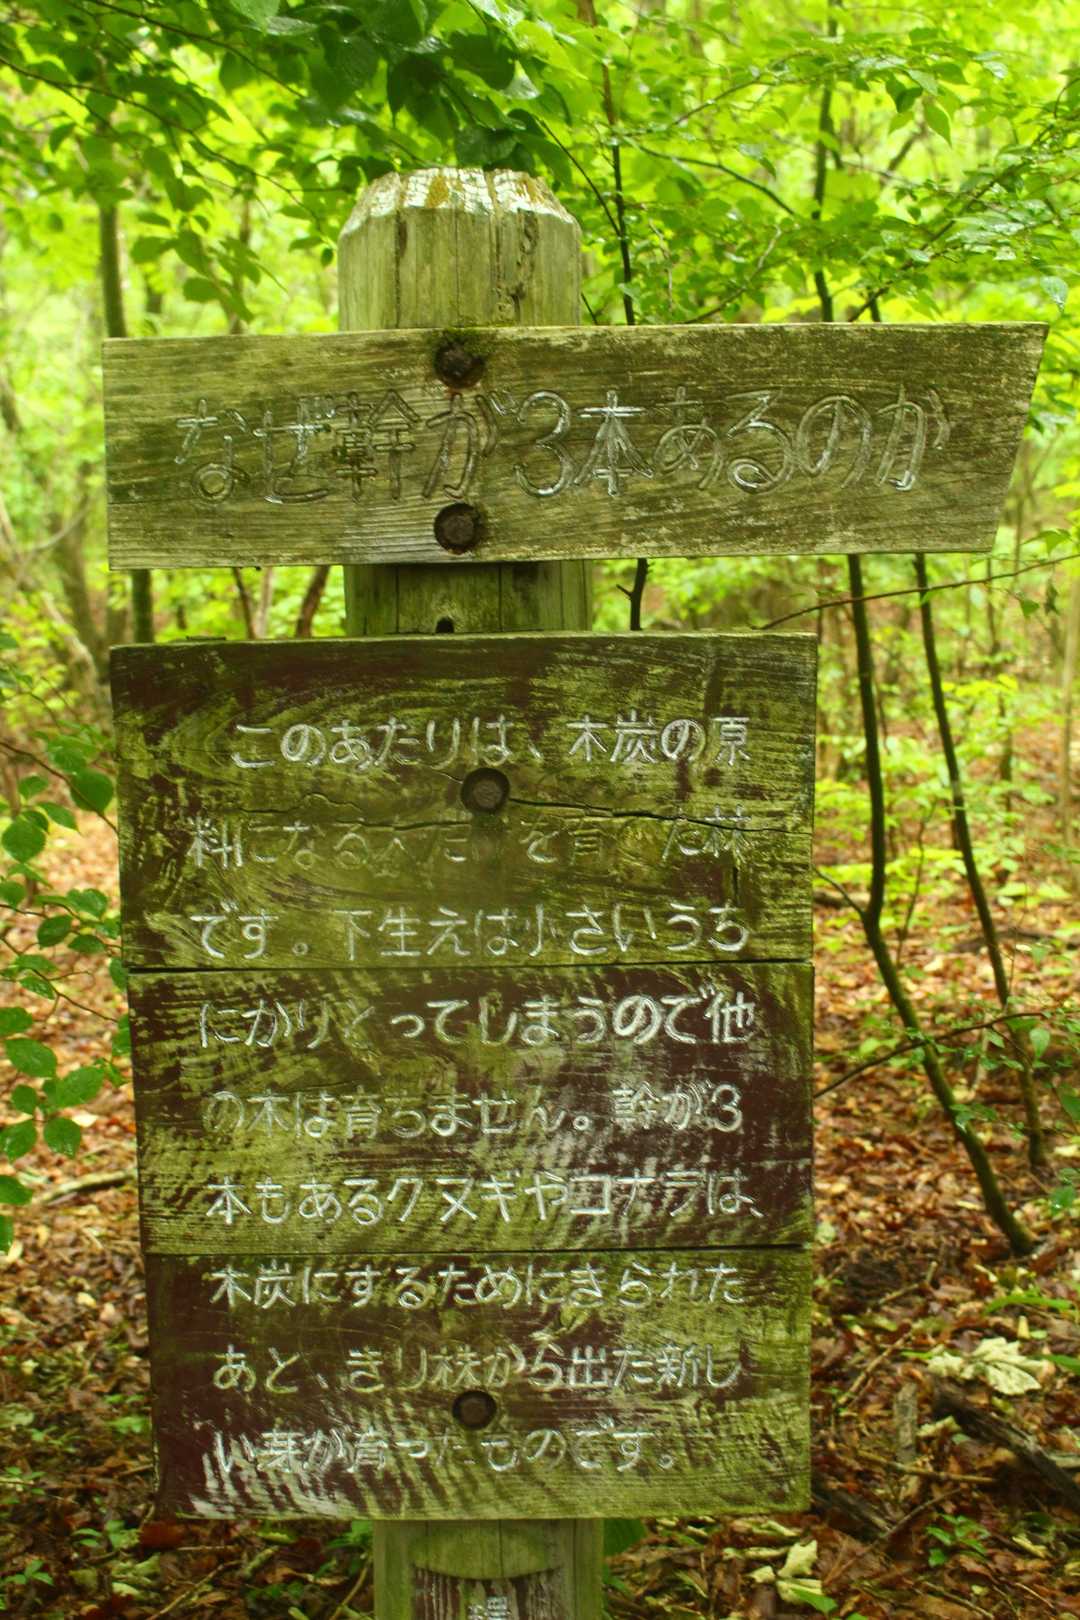 なぜ幹が3本あるのか
このあたりは、木炭の原
料になる木だけを育てた林
です。下生えは小さいうち
にかりとってしまうので他
の木は育ちません。幹が3
本もあるクヌギやコナラは、
木炭にするためにきられた
あと、きり株から出た新し
い芽が育ったものです。
環